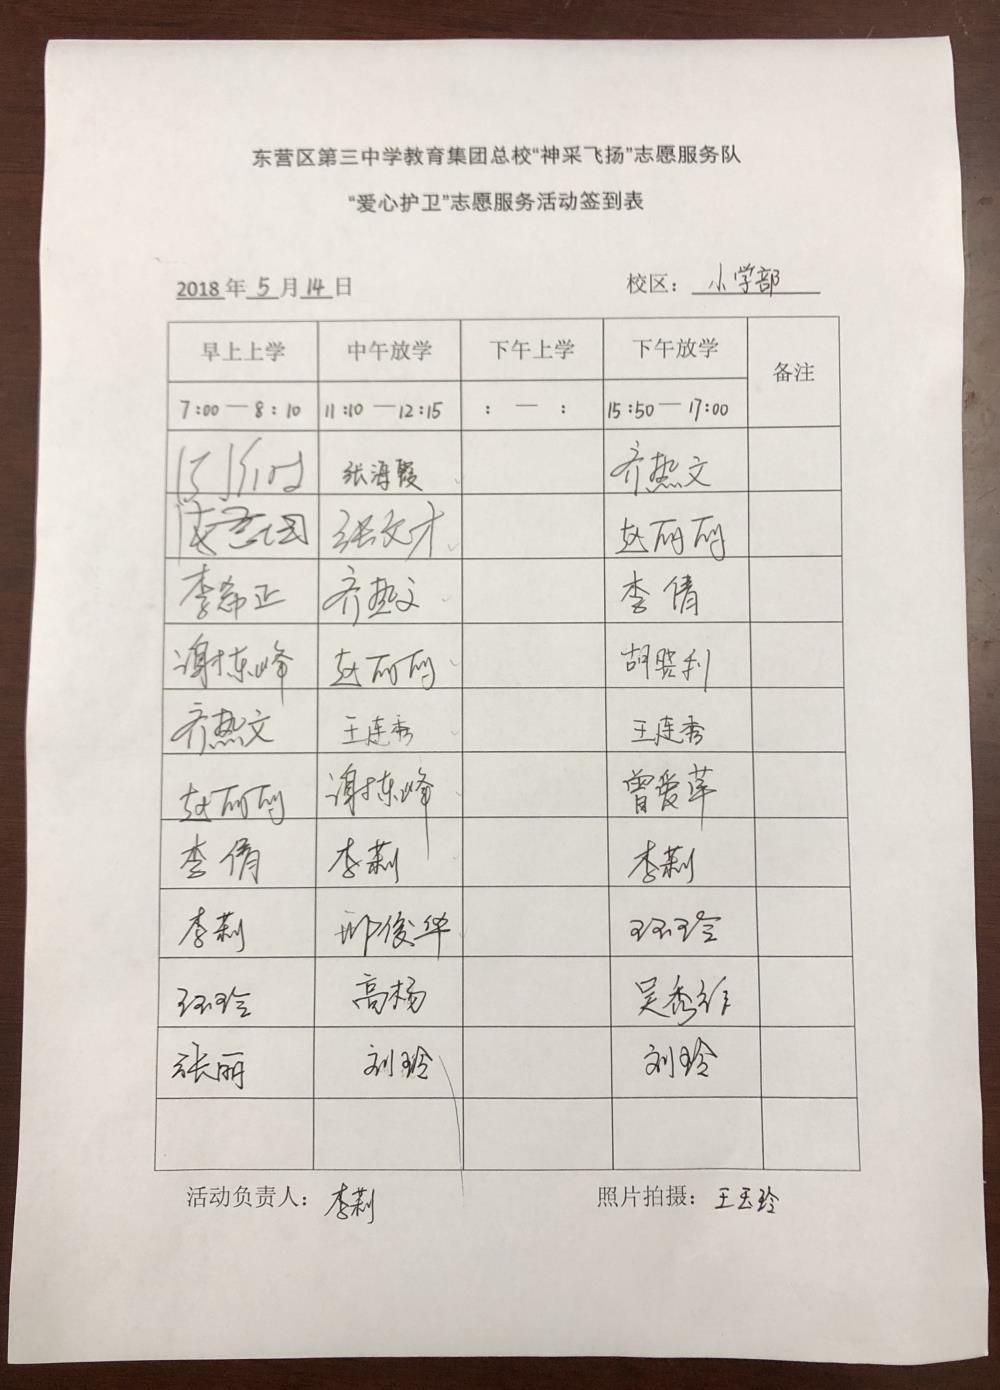 东营区第三中学教育集团总校“神采飞扬”志愿服务队
“爱心护卫”志愿服务活动签到表
2018年 5 月 14 日 校区：小学部
早上上学 中午放学 下午上学 下午放学 备注
7:00—8:10 11:10—12:15 :—: 15:50—17:00
张海霞 齐热文
张文才 赵丽丽
李希正 齐热文 李倩
谢栋峰 赵丽丽 胡胜利
齐热文 王连秀 王连秀
赵丽丽 谢栋峰 曾爱萍
李倩 李莉 李莉
李莉 邢俊华 王玉玲
王玉玲 高杨 吴秀
张丽 刘玲 刘玲
活动负责人：李莉 照片拍摄：王玉玲